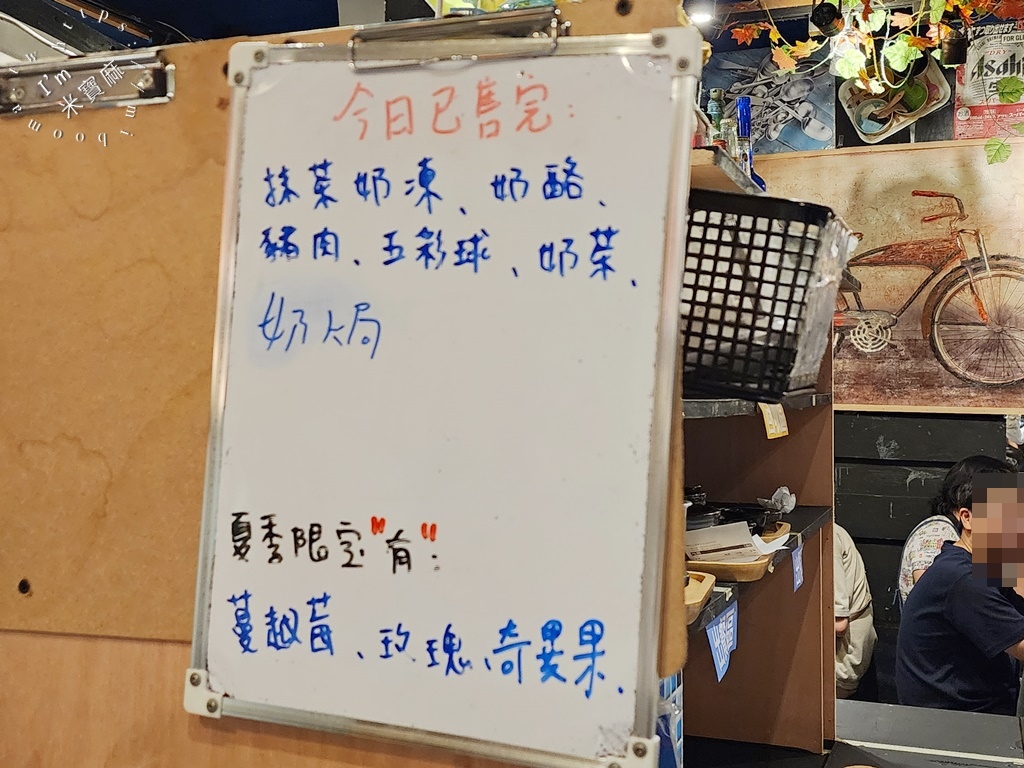 I'm 米寶麻
今日已售完:
抹茶奶凍、奶酪、
豬肉、五彩球、奶茶、
奶大局
夏季限定"有":
蔓越莓、玫瑰、奇異果.
Asahi